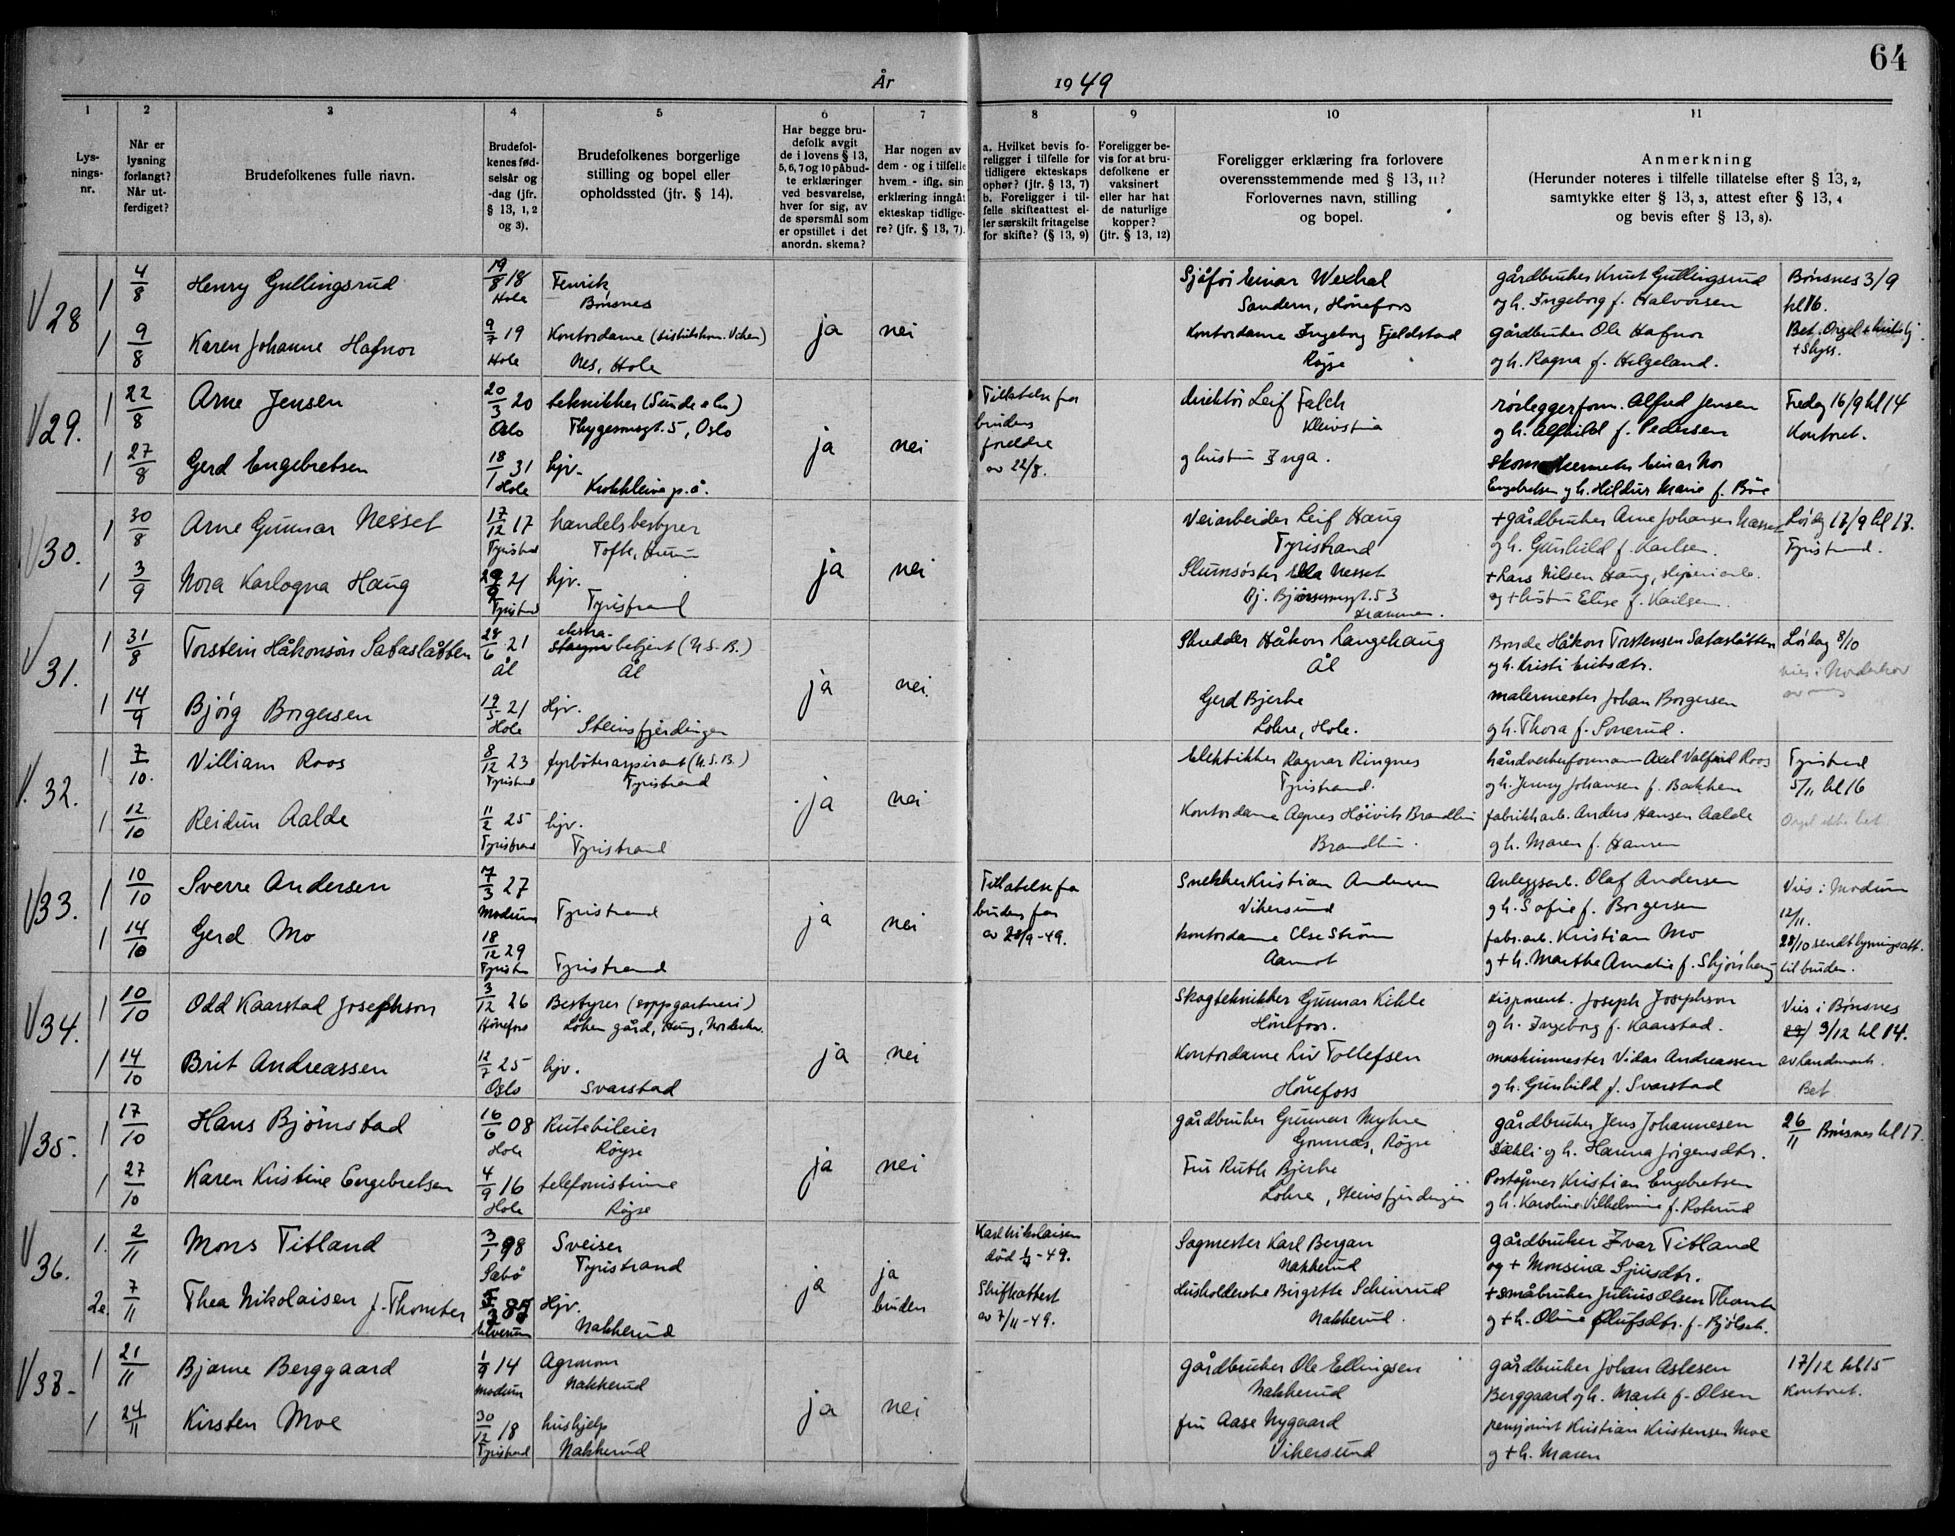 64
År 1949
1 2 3 4 5 6 7 8 9 10 11
Lys-
nings-
nr.
Når er
lysning
forlangt?
Når ut-
ferdiget?
Brudefolkenes fulle navn.
Brudefol-
kenes fød-
selsår og
-dag (jfr.
§ 13, 1, 2
og 3).
Brudefolkenes borgerlige
stilling og bopel eller
opholdssted (jfr. § 14).
Har begge bru-
defolk avgit
de i lovens § 13,
5, 6, 7 og 10 påbud-
te erklæringer
ved besvarelse,
hver for sig, av
de spørsmål som
er opstillet i det
anordn. skema?
Har nogen av
dem - og i tilfelle
hvem - iflg. sin
erklæring inngåt
ekteskap tidlige-
re? (jfr. § 13, 7).
a. Hvilket bevis fo-
religger i tilfelle for
tidligere ekteskaps
ophør? (jfr. § 13, 7)
b. Foreligger i til-
felle skifteattest el-
ler særskilt fritagelse
for skifte? (§ 13, 9)
Foreligger be-
vis for at bru-
defolkene er
vaksinert
eller har hat
de naturlige
kopper?
(jfr. § 13, 12)
Foreligger erklæring fra forlovere
overensstemmende med § 13, 11?
Forlovernes navn, stilling
og bopel.
Anmerkning
(Herunder noteres i tilfelle tillatelse efter § 13, 2,
samtykke efter § 13, 3, attest efter § 13, 4
og bevis efter § 13, 8).
V 28 1 4/8 Henry Gullingsrud 19/8 18 Hole Fenrik
Bønsnes
Sjåfør Einar Wexhal
Sandern, Hønefoss
gårdbruker Knut Gullingsrud
og h. Ingeborg f. Halvorsen
Bønsnes 3/9
kl 16.
1 9/8 Karen Johanne Hafnor 9/7 19 Hole Kontordame
Nes, Hole
ja nei
Kontordame Ingeborg Fjeldstad
Røyse
gårdbruker Ole Hafnor
og h. Ragna f. Helgeland.
Bet. Orgel
+ Skyss.
V 29. 1 22/8 Arne Jensen 20/3 20 Oslo tekniker
Thygesensgt. 5, Oslo
Tillatelse fra
brudens
foreldre
av 22/8.
direktør Leif Falch
rørleggerform. Alfred Jensen
og h. Alfhild f. Pedersen
Fredag 16/9 kl 14
Kontoret.
1 27/8 Gerd Engebretsen 18/1 31 Hole hjv.
Krokkleiva p.å.
ja nei
og hustru Inga.
Einar
Engebretsen og h. Hildur Marie f. Bøe
V 30. 1 30/8 Arne Gunnar Nesset 17/12 17 Tyristrand handelsbestyrer
Tofte, Hurum
Veiarbeider Leif Haug
Tyristrand
+ gårdbruker Arne Johansen Næsset
og h. Gunhild f. Karlsen.
Lørdag 17/9 kl 17.
Tyristrand.
1 3/9 Nora Karlogna Haug 21 Tyristrand hjv.
Tyristrand
ja nei
Ella Nesset
Drammen.
+ Lars Nilsen Haug,
og + hustru Elise f. Karlsen.
V 31. 1 31/8 Torstein Håkonson Sataslåtten 28/6 21 Ål ekstrabetjent (N.S.B.)
Ål
Skredder Håkon Langehaug
Ål
Bonde Håkon Torstensen Sataslåtten
og h. Kristi Eriksdtr.
Lørdag 8/10
vies i Norderhov
1 14/9 Bjørg Borgersen 19/5 21 Hole Hjv.
Steinsfjerdingen
ja nei.
Gerd Bjerke
Lohre, Hole.
malermester Johan Borgersen
og h. Thora f. Sonerud.
V. 32. 1 7/10. Villiam Roos 8/12 23 Tyristrand fyrbøteraspirant (N.S.B.)
Tyristrand
Elektriker Ragnar Ringnes
Tyristrand.
håndverkerformann Axel Valfrid Roos
og h. Jenny Johansen f. Bakken
Tyristrand
5/11 kl 16
1 12/10 Reidun Aalde 11/2 25 Tyristrand hjv.
Tyristrand
ja nei
Kontordame Agnes Høivik Brandlien
Brandlien.
fabrikkarb. Anders Hansen Aalde
og h. Maren f. Hansen
Orgel ikke bet
V 33. 1 10/10 Sverre Andersen 7/3 27 Modum
Tyristrand
Tillatelse fra
brudens far
av 28/9-49.
Snekker Kristian Andersen
Vikersund
Anleggsarb. Olaf Andersen
og h. Sofie f. Borgersen
Vies i Modum
12/11.
1 14/10 Gerd Mo 18/12 29
Tyristrand
ja nei
kontordame Else Strøm
Aamot
fabr.arb. Kristian Mo
og + h. Marthe Amalie f. Skjørshaug
28/10 sendt lysningsatt.
til bruden.
V 34. 1 10/10 Odd Kaarstad Josephson 3/12 26 Hønefoss Bestyrer (soppgartneri)
Løken gård, Haug, Norderhov.
Skogtekniker Gunnar Kihle
Hønefoss.
disponent. Joseph Josephson
og h. Ingeborg f. Kaarstad.
Vies i Bønsnes
3/12 kl 14.
1 14/10 Brit Andreassen 12/7 25 Oslo hjv.
Svarstad
ja nei
Kontordame Liv Tollefsen
Hønefoss
maskinmester Vidar Andreassen
og h. Gunhild f. Svarstad
av Landmark
Bet
V 35. 1 17/10 Hans Bjørnstad 16/6 08 Hole Rutebileier
Røyse
gårdbruker Gunnar Myhre
Gomnæs, Røyse
gårdbruker Jens Johannesen
Dæhli og h. Hanna Jørgensdtr.
26/11 Bønsnes kl 17.
1 27/10 Karen Kristine Engebretsen 4/9 16 Hole telefonistinne
Røyse
ja nei
Fru Ruth Bjerke
Lohre, Steinsfjerdingen
Poståpner Kristian Engebretsen
og h. Karoline Vilhelmine f. Roterud
V 36. 1. 2/11 Mons Titland 3/1 98 Sveiser
Tyristrand
Karl Nikolaisen
død 1/4-49.
Sagmester Karl Bergan
Nakkerud
gårdbruker Ivar Titland
og + Monsina Sjursdtr.
2. 7/11 Thea Nikolaisen f. Thomter Hjv.
Nakkerud
ja ja
bruden
Skifteattest
av 7/11-49.
Husholderske Birgitte Scheinrud
Nakkerud.
+ småbruker Julius Olsen Thomter
og + h. Oline Olufsdtr. f. Bjølset.
V 38. 1 21/11 Bjarne Berggaard 1/9 14 Modum Agronom
Nakkerud
gårdbruker Ole Ellingsen
Nakkerud
gårdbruker Johan Aslesen
Berggaard og h. Marte f. Olsen
17/12 kl 15
Kontoret.
1 24/11 Kirsten Moe 30/12 18 Tyristrand hushjelp
Nakkerud
ja nei
fru Aase Nygaard
Vikersund
pensjonist Kristian Kristensen Moe
og + h. Maren